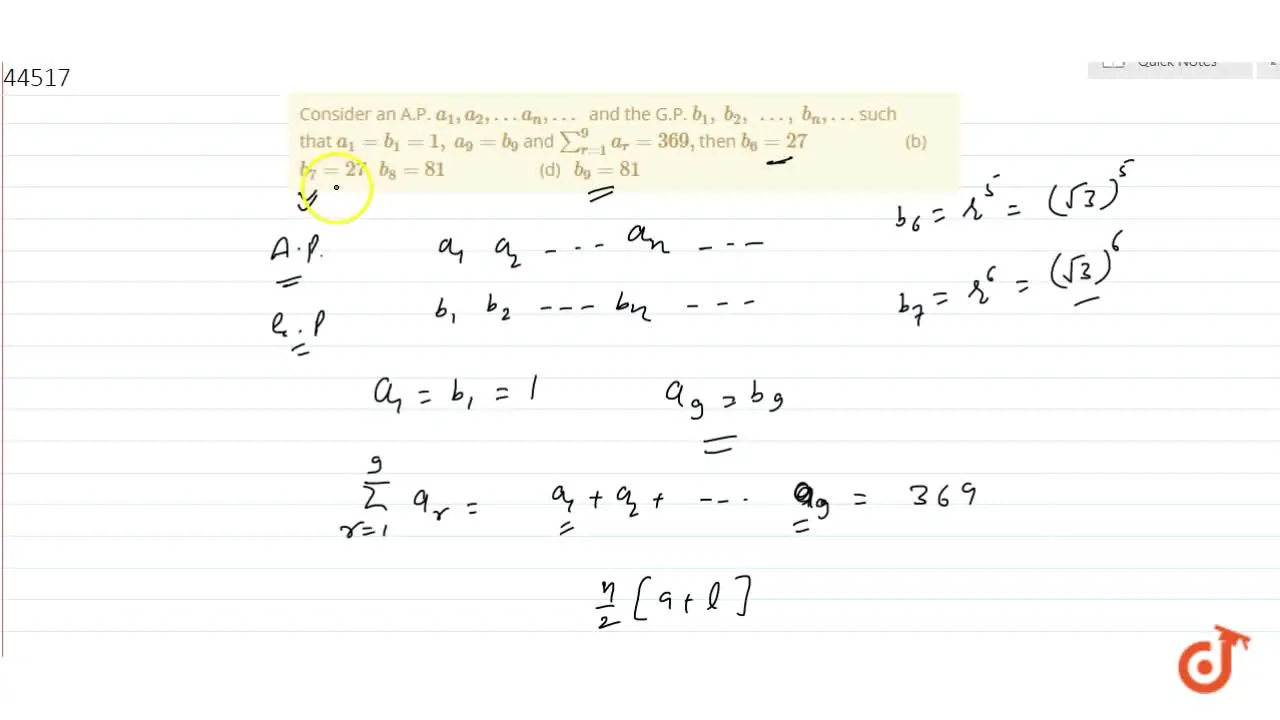 44517
Quick Notes
Consider an A.P. a₁, a₂, … aₙ, … and the G.P. b₁, b₂, …, bₙ, … such
that a₁ = b₁ = 1, a₉ = b₉ and ∑⁹ᵣ₌₁ aᵣ = 369, then b₆ = 27 (b)
b₇ = 27 b₈ = 81 (d) b₉ = 81
b₆ = r⁵ = (√3)⁵
A.P. a₁ a₂ --- aₙ ---
b₇ = r⁶ = (√3)⁶
G.P b₁ b₂ --- bₙ ---
a₁ = b₁ = 1 a₉ = b₉
∑⁹ᵣ₌₁ aᵣ = a₁ + a₂ + --- a₉ = 369
n/2 [a + l]